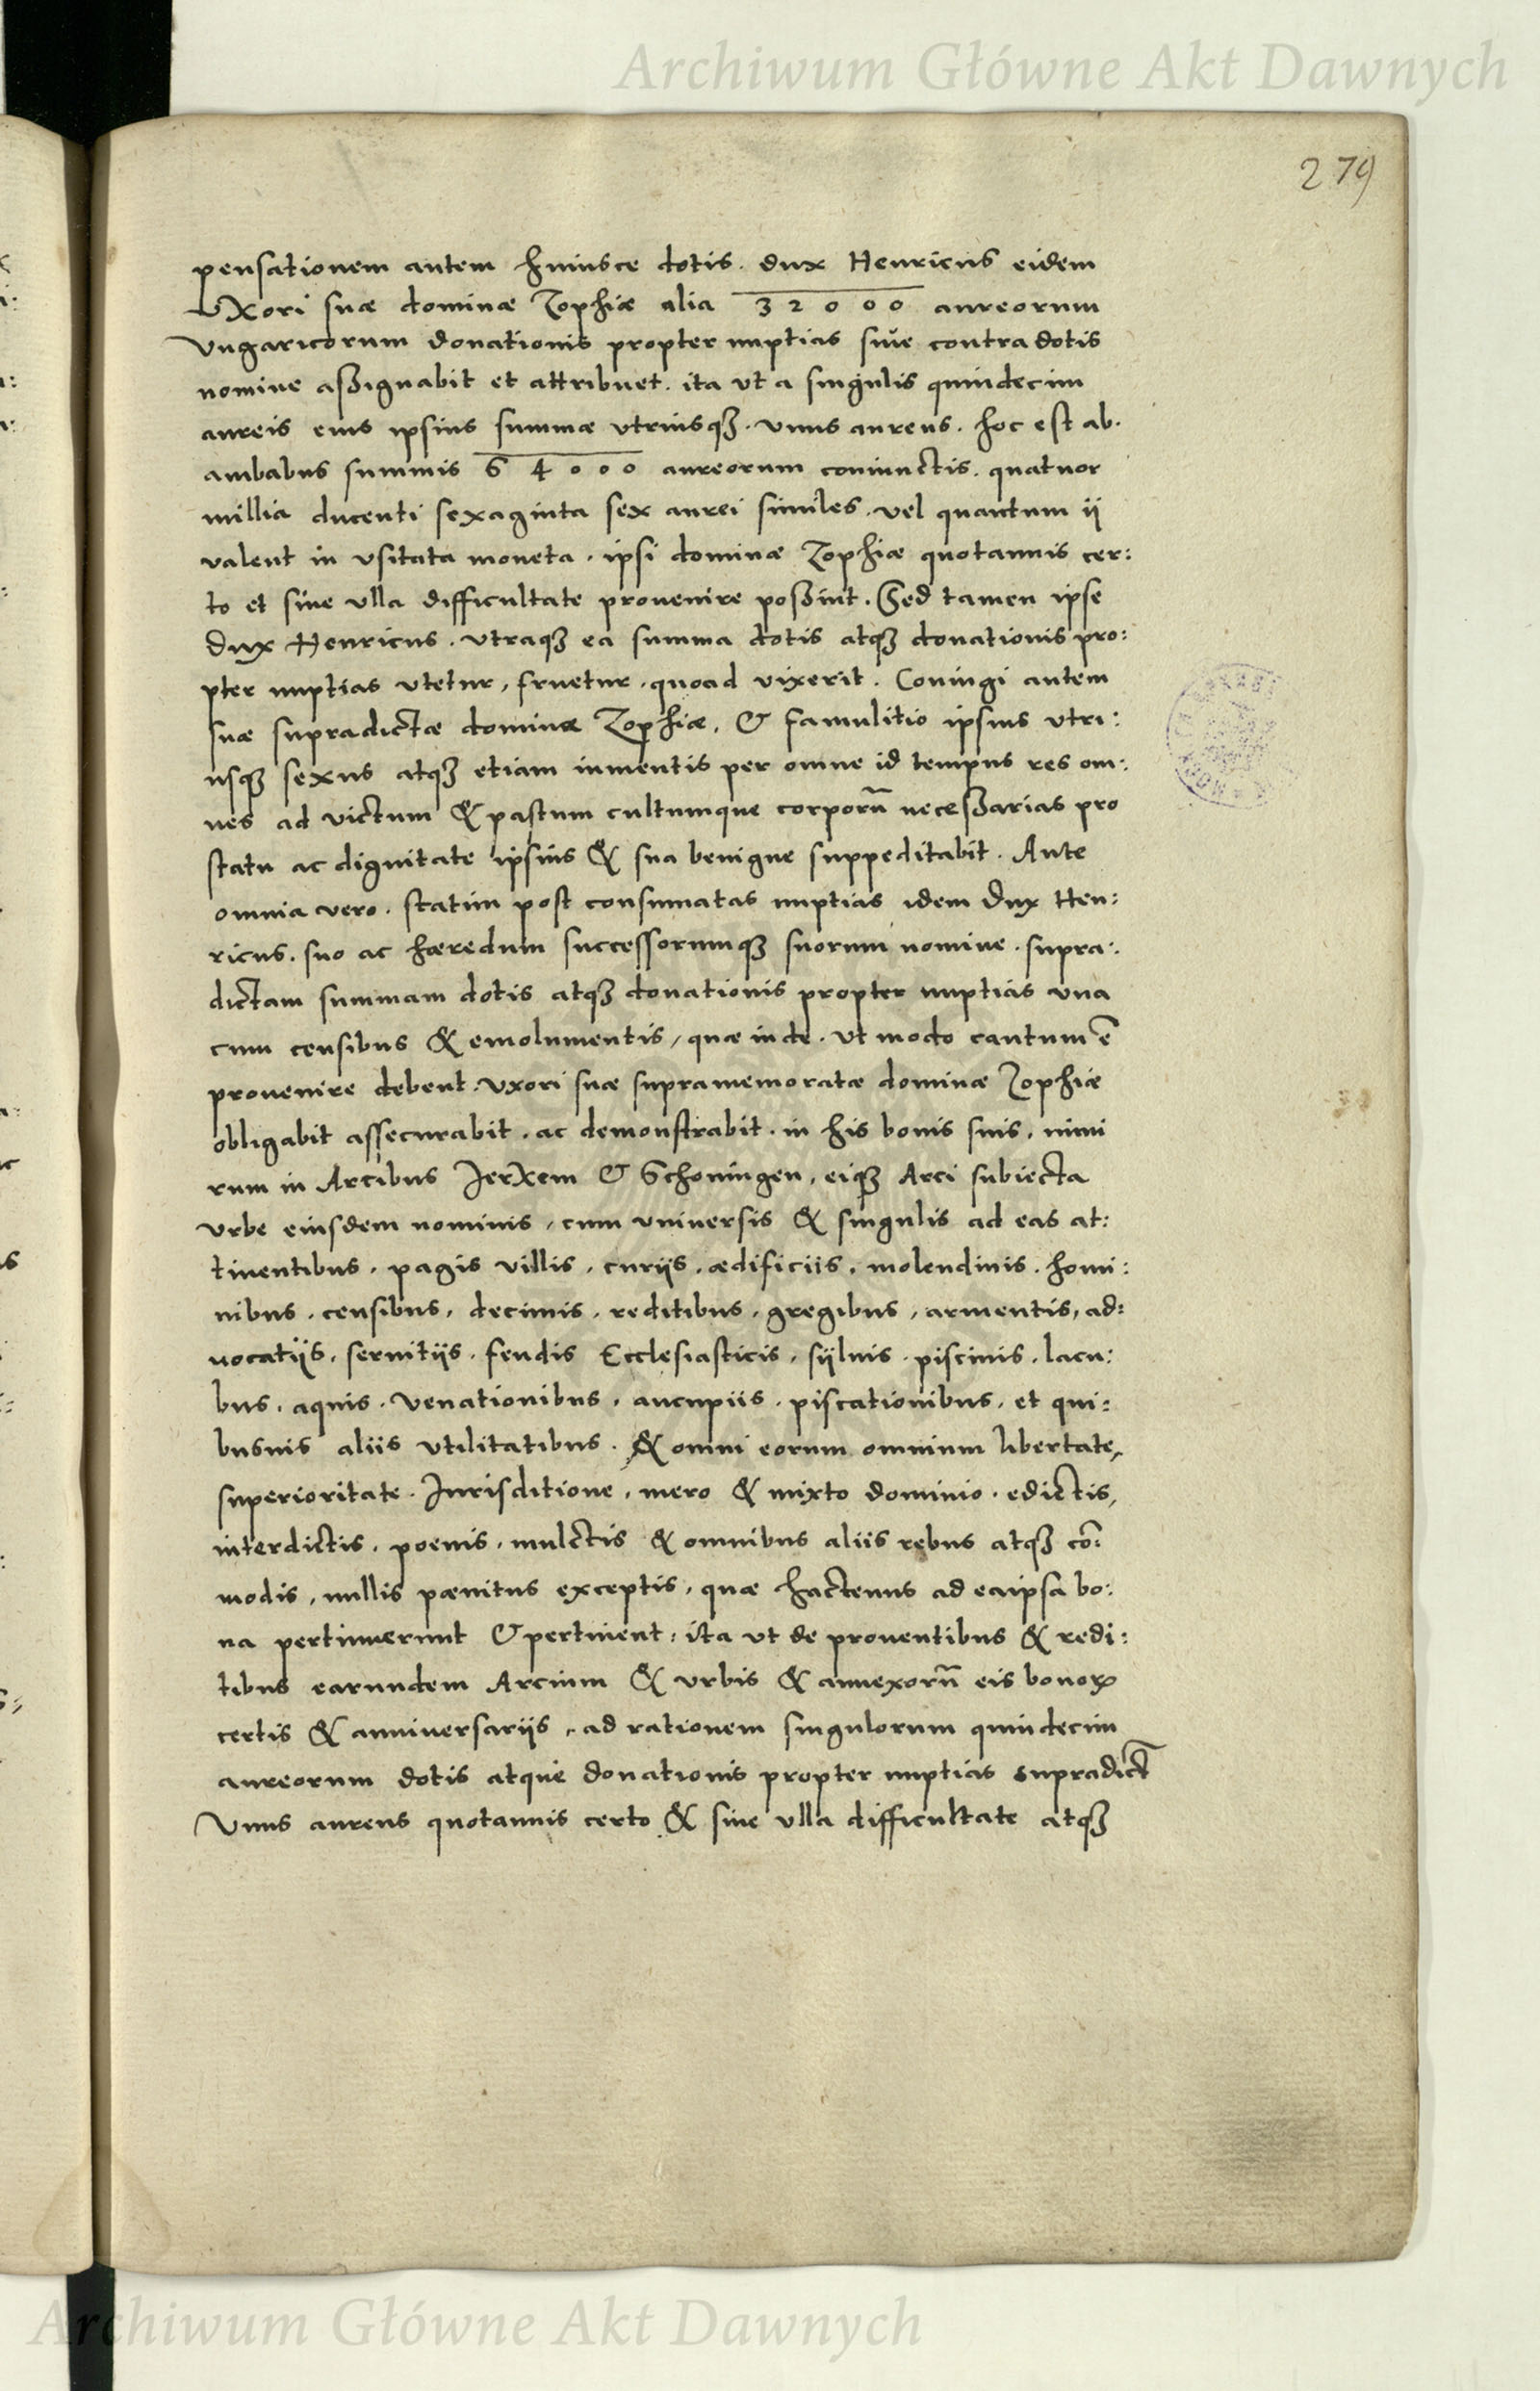 Archiwum Główne Akt Dawnych
279
pensationem autem huiusce dotis. dux Henricus eidem
Uxori suæ dominæ Zophiæ alia 32000 aureorum
Vngaricorum donationis propter nuptias siue contradotis
nomine aßignabit et attribuet. ita ut a singulis quindecim
aureis eius ipsius summæ vtriusqȝ. vnus aureus. hoc est ab.
ambabus summis 64000 aureorum coniunctis. quatuor
millia ducenti sexaginta sex aurei similes. vel quantum ii
valent in vsitata moneta. ipsi dominæ Zophiæ quotannis cer:
to et sine ulla difficultate prouenire poßint. Sed tamen ipse
Dux Henricus. vtraqȝ ea summa dotis atqȝ donationis pro:
pter nuptias vtetur, fruetur. quoad vixerit. Coniugi autem
suæ supradictæ dominæ Zophiæ, & famulitio ipsius vtri:
usqȝ sexus atqȝ etiam iumentis per omne id tempus res om:
nes ad victum & pastum cultumque corporū neceßarias pro
statu ac dignitate ipsius & sua benigne suppeditabit. Ante
omnia vero. statim post consumatas nuptias idem Dux Hen:
ricus. suo ac hæredum successorumqȝ suorum nomine. supra:
dictam summam dotis atqȝ donationis propter nuptias vna
cum censibus & emolumentis, quæ inde. ut modo cautum ē
prouenire debent. vxori suæ supramemoratæ dominæ Zophiæ
obligabit assecurabit. ac demonstrabit. in his bonis suis, nimi
rum in Arcibus Jerxem & Schoningen, eiqȝ Arci subiecta
vrbe eiusdem nominis, cum vniuersis & singulis ad eas at:
tinentibus. pagis villis. curijs. ædificiis. molendinis. homi:
nibus. censibus, decimis. reditibus, gregibus, armentis, ad:
uocatijs. seruitijs. feudis Ecclesiasticis. sijluis. piscinis. lacu:
bus. aquis. venationibus. aucupiis. piscationibus. et qui:
busuis aliis vtilitatibus. & omni eorum omnium libertate,
superioritate. Jurisditione, mero & mixto dominio. edictis,
interdictis. poenis. mulctis & omnibus aliis rebus atqȝ cō:
modis, nullis pænitus exceptis, quæ hactenus ad eaipsa bo:
na pertinuerunt & pertinent: ita ut de prouentibus & redi:
tibus earundem Arcium & vrbis & annexorū eis bonoꝝ
certis & anniuersarijs, ad rationem singulorum quindecim
aureorum dotis atque donationis propter nuptias supradict
Vnus aureus quotannis certo & sine ulla difficultate atqȝ
Archiwum Główne Akt Dawnych